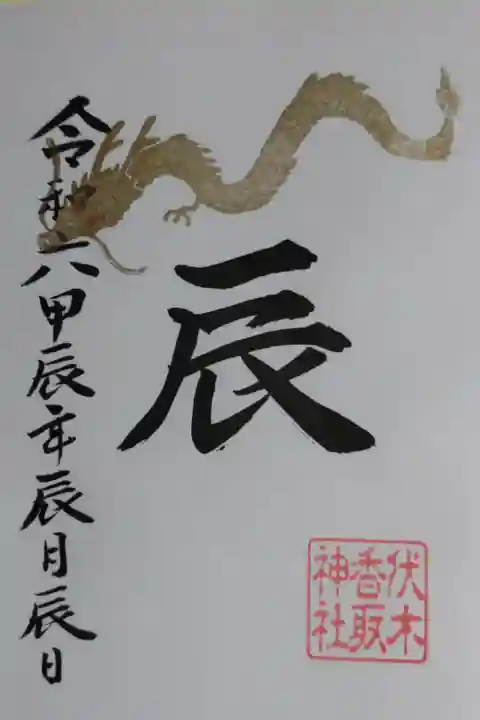 辰
令和六甲辰年辰月辰日
伏木
香取
神社